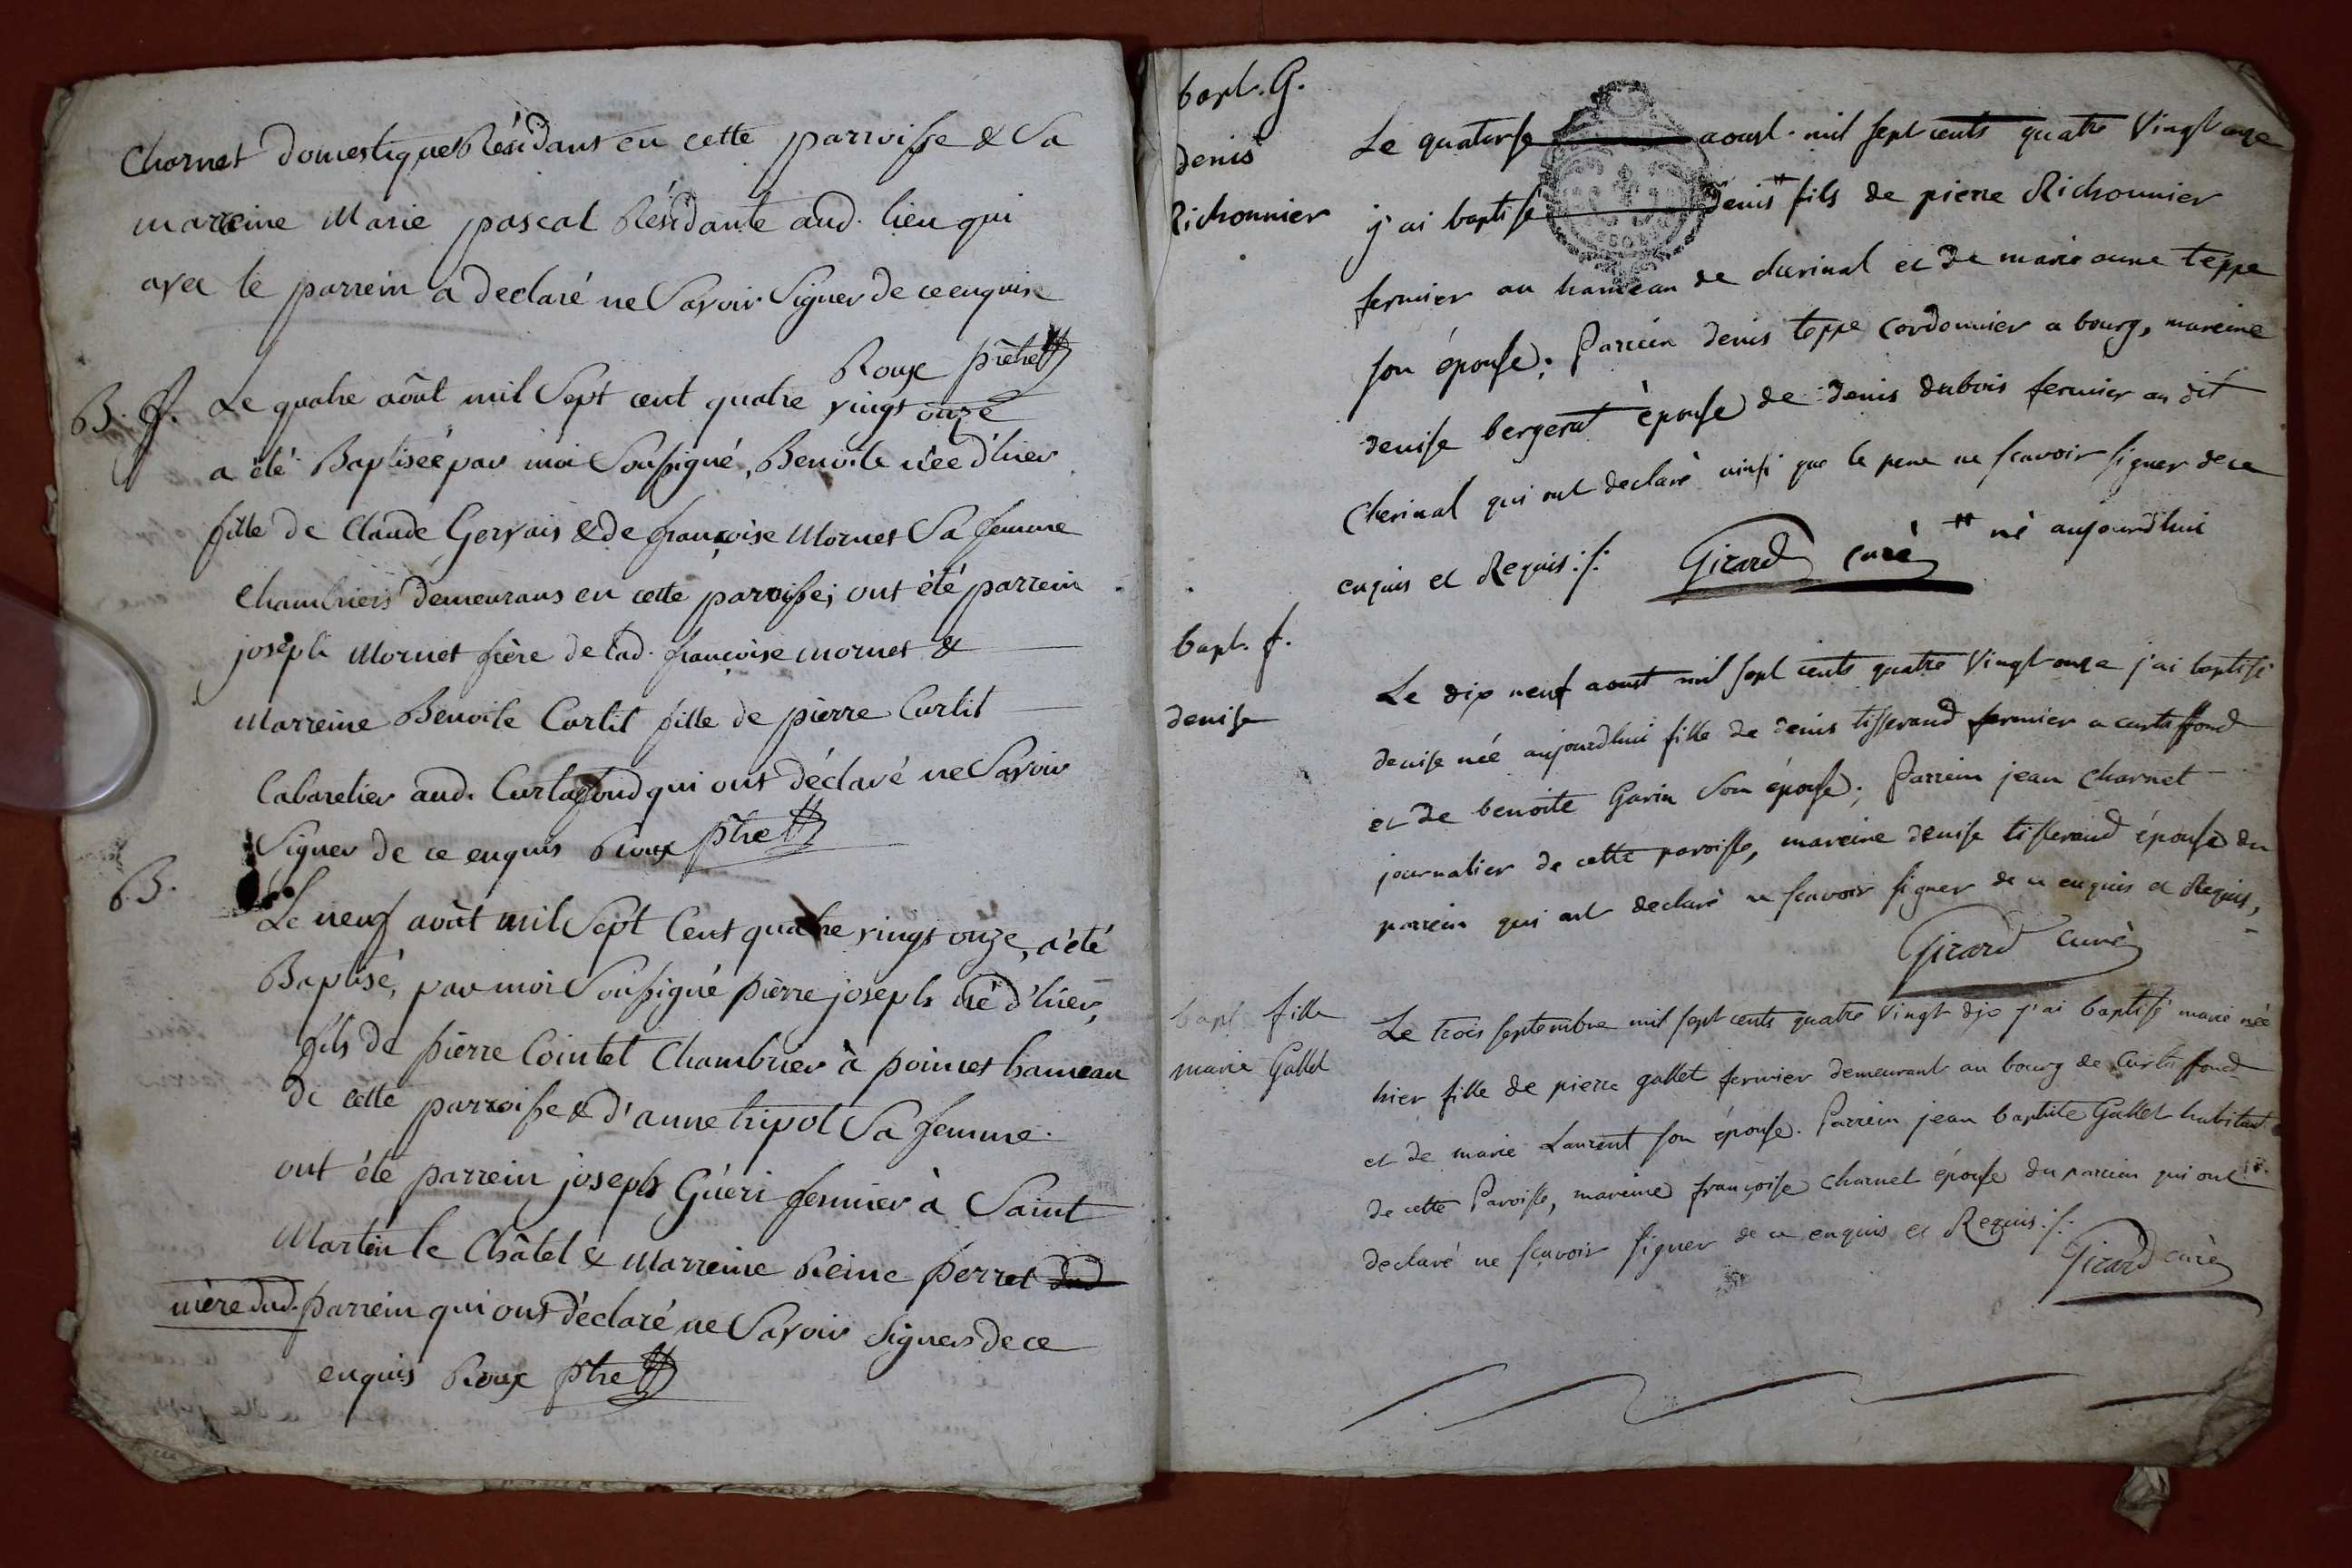 Charnet domestiques Résidans en cette parroisse & Sa
marreine Marie pascal Résidante aud. lieu qui
avec le parrein a declaré ne Savoir Signer de ce enquise
Roux prêtre
B. f. Le quatre aôut mil Sept cent quatre vingt onze
a été Baptiseé par moi Soussigné, Benoite née d'hier
fille de Claude Gervais & de françoise Mornet Sa femme
Chambriers demeurans en cette parroisse; ont été parrein
joseph Mornet frère de lad. françoise mornet &
Marreine Benoite Curtil fille de pierre Curtil
Cabaretier aud. Curtafond qui ont déclaré ne Savoir
Signer de ce enquis Roux ptre
B.
Le neuf aôut mil Sept Cent quatre vingt onze, a été
Baptisé, par moi Soussigné pierre joseph né d'hier,
fils de pierre Cointet Chambrier à poimet hameau
de cette parroisse & d'anne tripot Sa femme.
ont été parrein joseph Guéri fermier à Saint
Martin le Châtel & Marreine Reine perret dud
mère dud. parrein qui ont déclaré ne Savoir Signer de ce
enquis Roux ptre
bapt. G.
denis
Richonnier
Le quatorse aoust mil sept cents quatre Vingt onze
j'ai baptisé denis # fils de pierre Richonnier
fermier au hameau de cherinal et de marie anne teppe
son épouse; Parrein denis teppe Cordonnier a bourg, mareine
denise bergerat épouse de denis dubois fermier au dit
Cherinal qui ont declaré ainsi que le pere ne scavoir signer de ce
enquis et Requis :/: Girard curé # né aujourdhui
bapt. f.
denise
Le dix neuf aoust mil sept cents quatre Vingt onze j'ai baptisé
denise née aujourdhui fille de denis tisserand fermier a curtaffond
et de benoite Gavin Son épouse; Parrein jean Charnet
journalier de cette paroisse, mareine denise tisserand épouse du
parrein qui ont declaré ne scavoir signer de ce enquis et Requis,
Girard Curé
bapt fille
marie Gallet
Le trois septembre mil sept cents quatre Vingt dix j'ai baptisé marie née
hier fille de pierre gallet fermier demeurant au bourg de Curtaffond
et de marie Laurent son épouse. Parrein jean baptiste Gallet habitant
de cette Paroisse, mareine françoise charnet épouse du parrein qui ont
declaré ne scavoir signer de ce enquis et Requis :/:
Girard curé